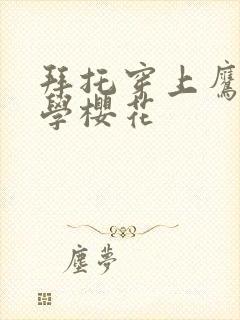 拜托穿上鷹
學櫻花
塵夢